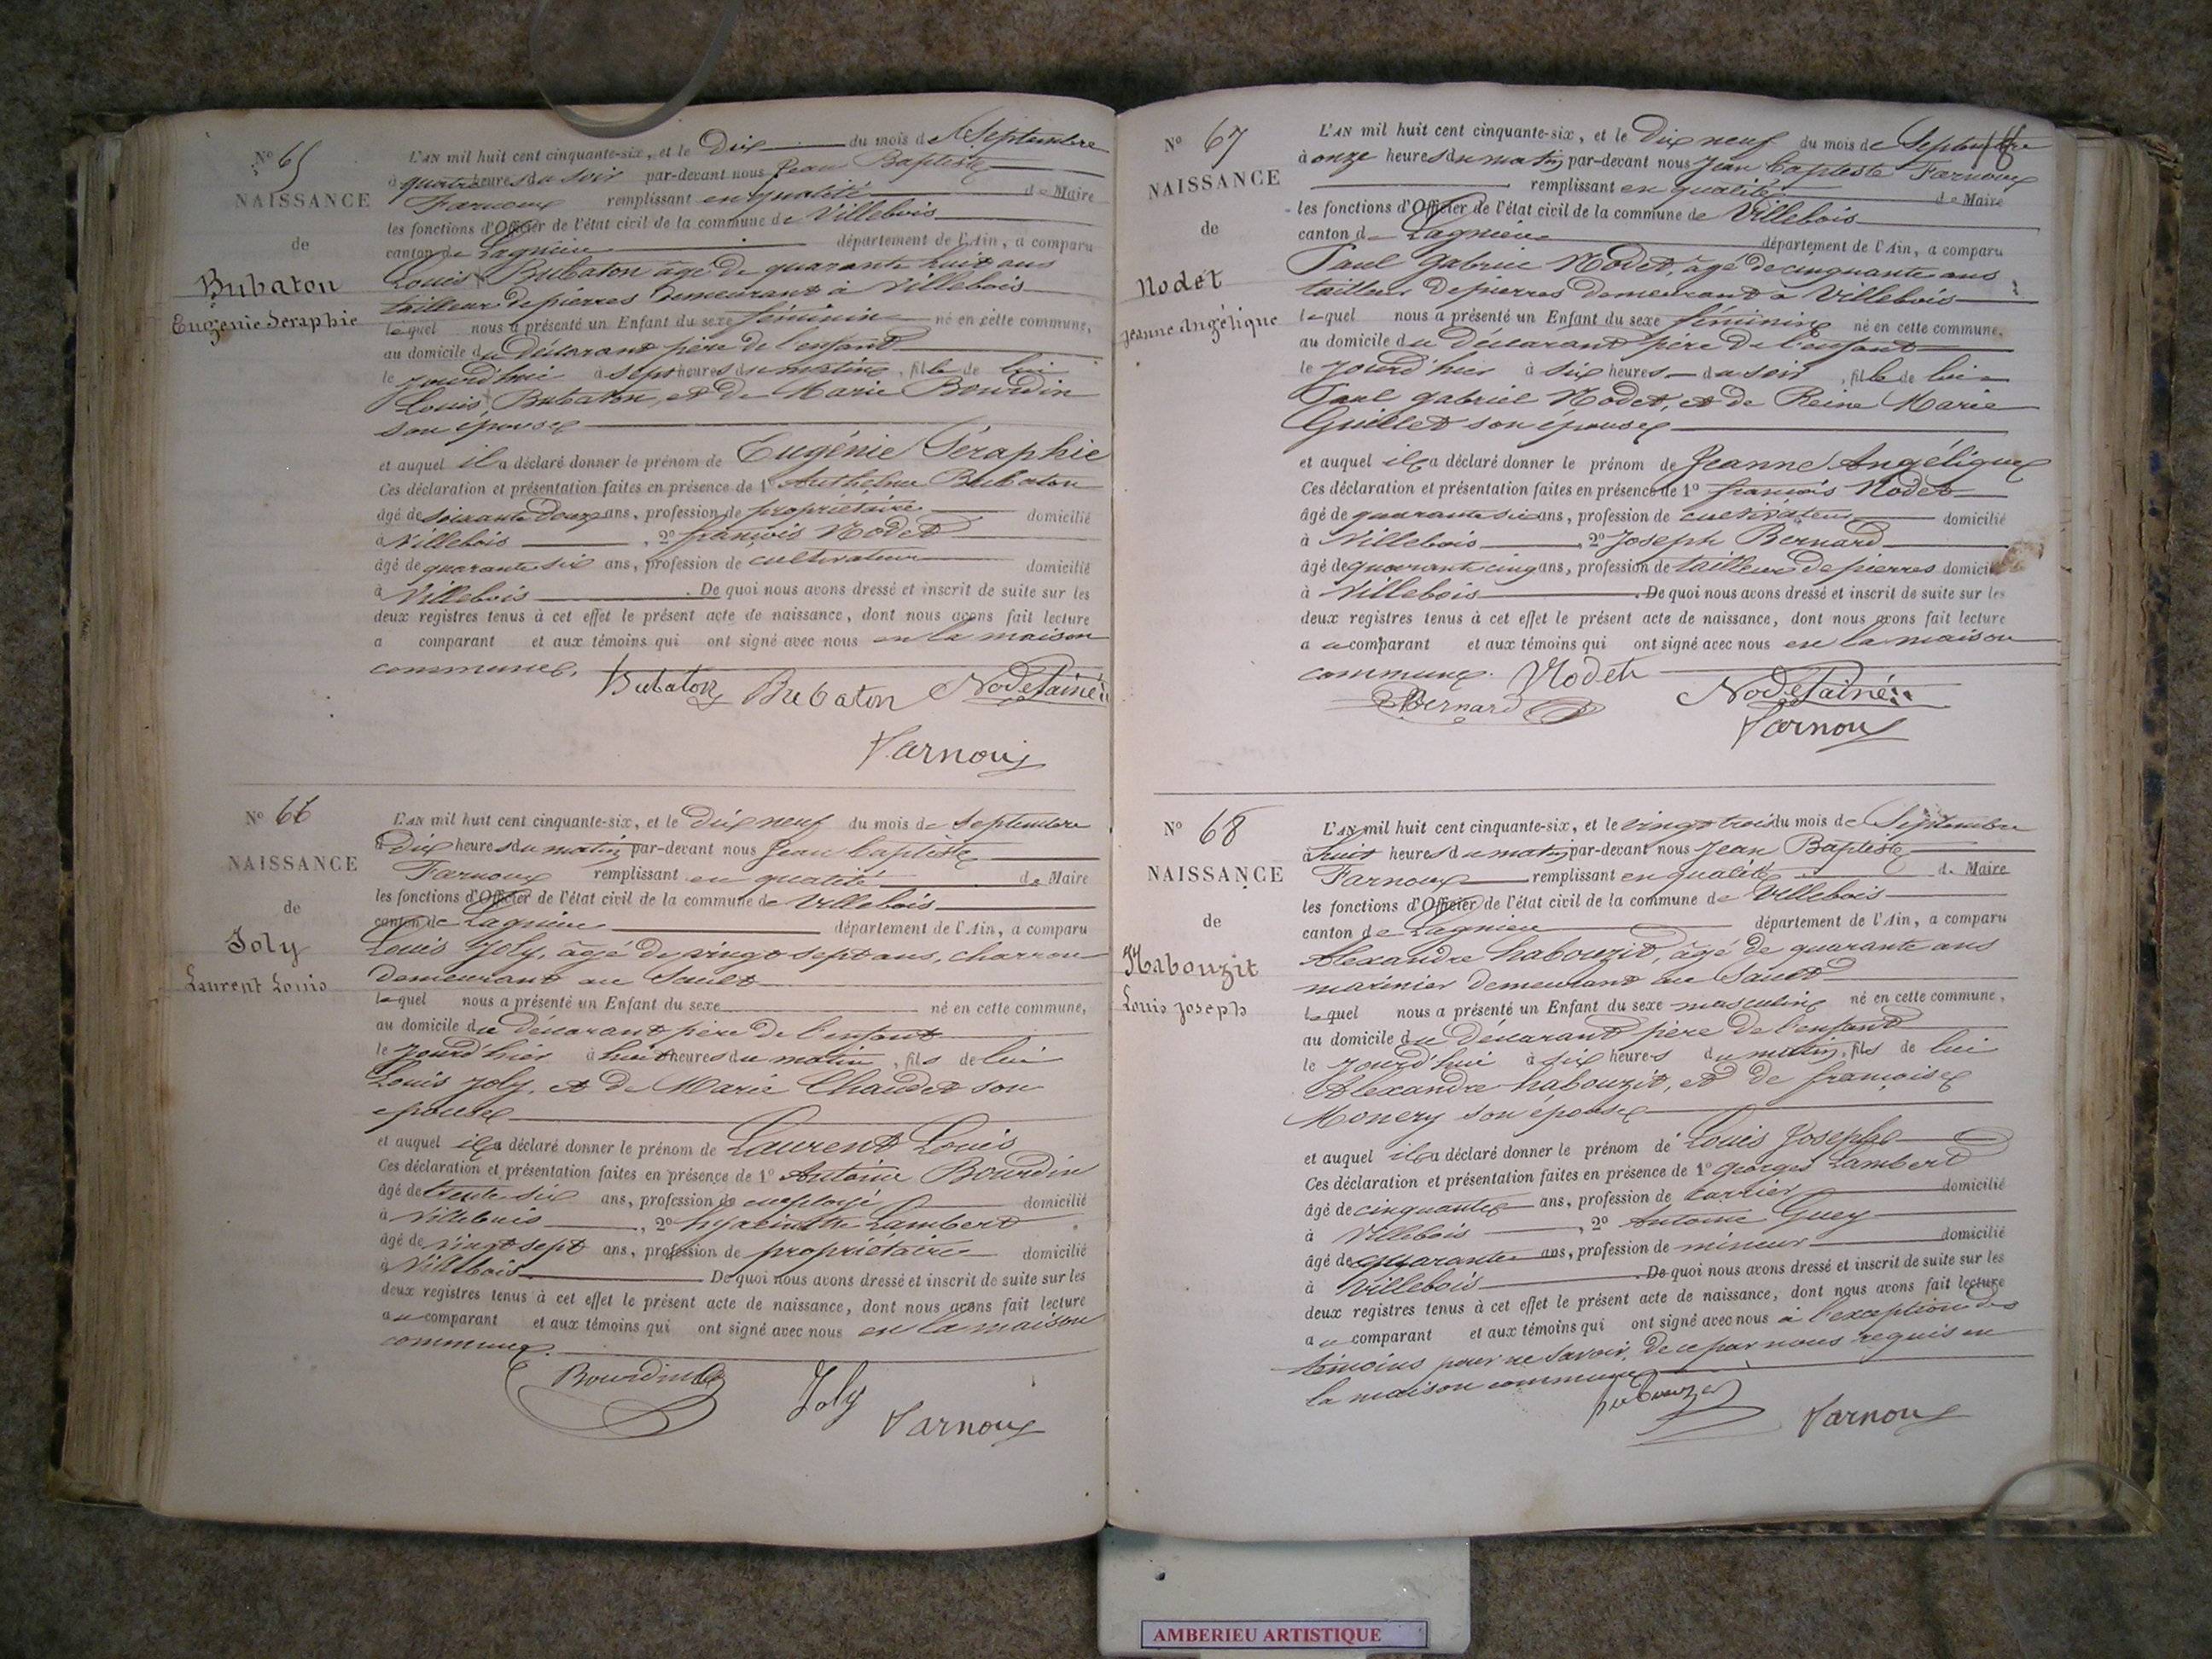 N° 65
NAISSANCE
de
Bubaton
Eugénie Séraphie
L'AN mil huit cent cinquante-six, et le Dix du mois de Septembre
à quatre heures du soir par-devant nous Jean Baptiste
Farnoux remplissant en qualité de Maire
les fonctions d'Officier de l'état civil de la commune de Villebois
canton de Lagnieu département de l'Ain, a comparu
Louis Bubaton âgé de quarante huit ans
tailleur de pierres demeurant à Villebois
lequel nous a présenté un Enfant du sexe féminin né en cette commune,
au domicile du déclarant père de l'enfant
le jourd'hui à sept heures du matin, fille de lui
Louis Bubaton, et de Marie Bourdin
son épouse
et auquel il a déclaré donner le prénom de Eugénie Séraphie
Ces déclaration et présentation faites en présence de 1° Anthelme Bubaton
âgé de soixante deux ans, profession de propriétaire domicilié
à Villebois, 2° françois Nodet
âgé de quarante six ans, profession de cultivateur domicilié
à Villebois. De quoi nous avons dressé et inscrit de suite sur les
deux registres tenus à cet effet le présent acte de naissance, dont nous avons fait lecture
a comparant et aux témoins qui ont signé avec nous en la maison
commune.
Bubaton Bubaton Nodet ainé
Farnoux
N° 66
NAISSANCE
de
Joly
Laurent Louis
L'AN mil huit cent cinquante-six, et le dix neuf du mois de Septembre
à dix heures du matin par-devant nous Jean baptiste
Farnoux remplissant en qualité de Maire
les fonctions d'Officier de l'état civil de la commune de Villebois
canton de Lagnieu département de l'Ain, a comparu
Louis Joly, âgé de vingt sept ans, charron
demeurant au Sault
lequel nous a présenté un Enfant du sexe né en cette commune,
au domicile du déclarant père de l'enfant
le jourd'hier à huit heures du matin, fils de lui
Louis Joly, et de Marie Chaudet son
épouse
et auquel il a déclaré donner le prénom de Laurent Louis
Ces déclaration et présentation faites en présence de 1° Antoine Bourdin
âgé de trente six ans, profession de employé domicilié
à Villebois, 2° hyacinthe Lambert
âgé de vingt sept ans, profession de propriétaire domicilié
à Villebois De quoi nous avons dressé et inscrit de suite sur les
deux registres tenus à cet effet le présent acte de naissance, dont nous avons fait lecture
au comparant et aux témoins qui ont signé avec nous en la maison
commune.
Bourdin Joly Farnoux
N° 67
NAISSANCE
de
Nodet
Jeanne Angélique
L'AN mil huit cent cinquante-six, et le dix neuf du mois de Septembre
à onze heures du matin par-devant nous Jean baptiste Farnoux
remplissant en qualité de Maire
les fonctions d'Officier de l'état civil de la commune de Villebois
canton de Lagnieu département de l'Ain, a comparu
Paul Gabriel Nodet, âgé de cinquante ans
tailleur de pierres demeurant à Villebois
lequel nous a présenté un Enfant du sexe féminin né en cette commune.
au domicile du déclarant père de l'enfant
le jourd'hier à six heures du soir, fille de lui
Paul gabriel Nodet, et de Reine Marie
Guillet son épouse
et auquel il a déclaré donner le prénom de Jeanne Angélique
Ces déclaration et présentation faites en présence de 1° françois Nodet
âgé de quarante six ans, profession de cultivateur domicilié
à Villebois, 2° Joseph Bernard
âgé de quarante cinq ans, profession de tailleur de pierres domici
à Villebois. De quoi nous avons dressé et inscrit de suite sur les
deux registres tenus à cet effet le présent acte de naissance, dont nous avons fait lecture
au comparant et aux témoins qui ont signé avec nous en la maison
commune. Nodet
Bernard Nodet ainé
Farnoux
N° 68
NAISSANCE
de
Habouzit
Louis Joseph
L'AN mil huit cent cinquante-six, et le vingt trois du mois de Septembre
à huit heures du matin par-devant nous Jean Baptiste
Farnoux remplissant en qualité de Maire
les fonctions d'Officier de l'état civil de la commune de Villebois
canton de Lagnieu département de l'Ain, a comparu
Alexandre habouzit, âgé de quarante ans
marinier demeurant au Sault
lequel nous a présenté un Enfant du sexe masculin né en cette commune,
au domicile du déclarant père de l'enfant
le jourd'hui à six heures du matin, fils de lui
Alexandre habouzit, et de françoise
Monery son épouse
et auquel il a déclaré donner le prénom de Louis Joseph
Ces déclaration et présentation faites en présence de 1° georges Lambert
âgé de cinquante ans, profession de carrier domicilié
à Villebois, 2° Antoine Guey
âgé de quarante ans, profession de mineur domicilié
à Villebois. De quoi nous avons dressé et inscrit de suite sur les
deux registres tenus à cet effet le présent acte de naissance, dont nous avons fait lecture
au comparant et aux témoins qui ont signé avec nous à l'exception des
témoins pour ne savoir, de ce par nous requis en
la maison commune
Farnoux
AMBERIEU ARTISTIQUE